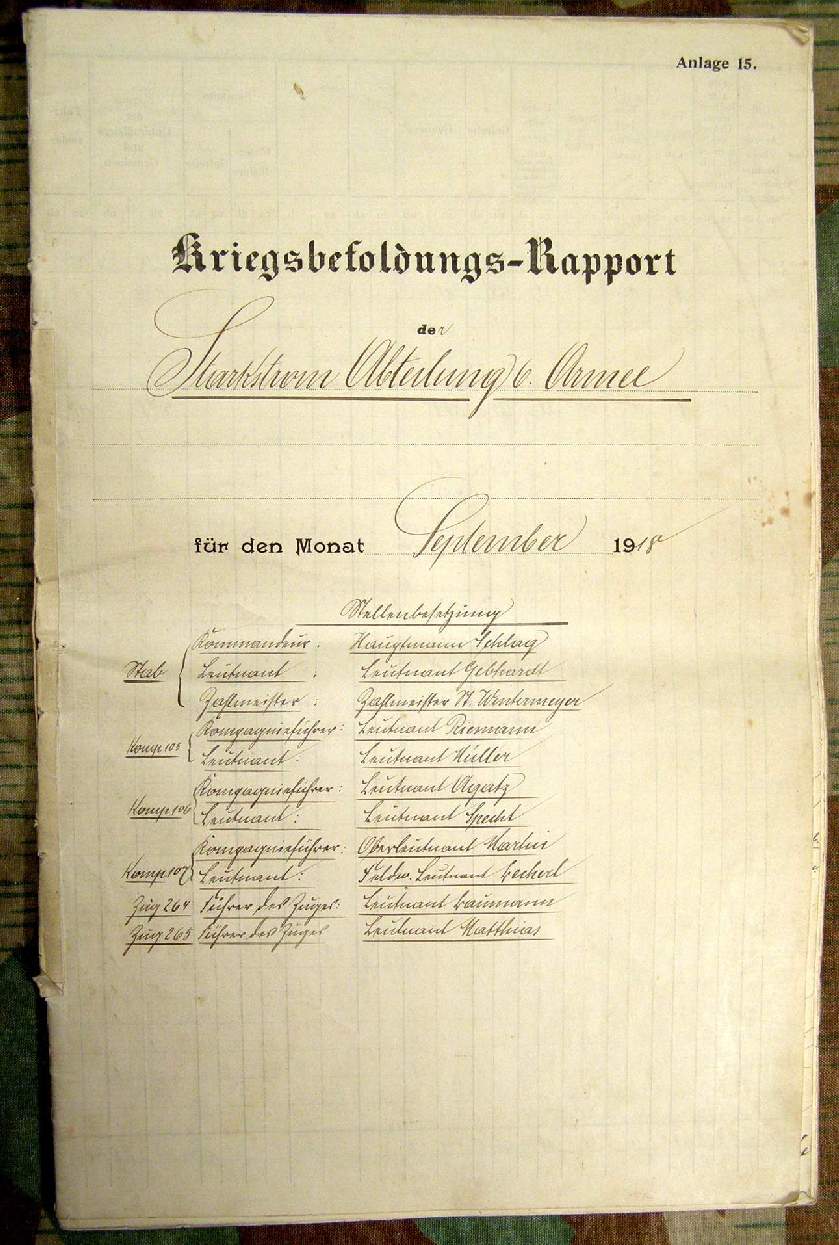 Anlage 15.
Kriegsbesoldungs-Rapport
der
Starkstrom Abteilung 6. Armee
für den Monat September 1918
Stellenbesetzung
Stab Kommandeur: Hauptmann Schlag
Leutnant : Leutnant Gebhardt
Zahlmeister : Zahlmeister St. Wintermeyer
Komp. 105 Kompagnieführer: Leutnant Riemann
Leutnant: Leutnant Müller
Komp. 106 Kompagnieführer: Leutnant
Leutnant: Leutnant Specht
Komp. 107 Kompagnieführer: Oberleutnant Martin
Leutnant: Feldw. Leutnant Bechert
Zug 264 Führer des Zuges: Leutnant Baumann
Zug 265 Führer des Zuges Leutnant Matthias